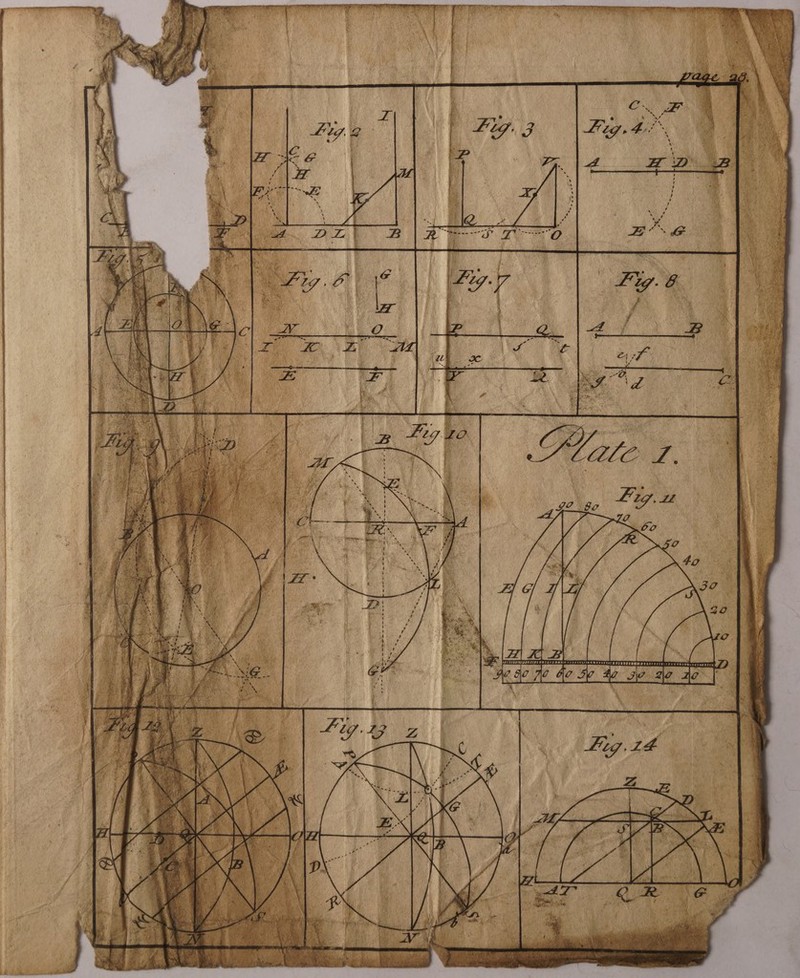 page 28.
Fig. 2
I
H C G
H
M
F E
K
A D L B
Fig. 3
P
V
X
Q
R S T O
Fig. 4
C F
A H D B
E G
C
D
F
Fig. 5
A E O G C
H
D
Fig. 6
G
H
N O
I K L M
E F
Fig. 7
P Q
s t
u x
Y
Fig. 8
A B
e f
g d C
Fig. 9
D
B
A
O
E
G
Fig 10
B
M
E
C R F A
H
L
D
G
Plate 1.
Fig. 11
A 90 80
70
60
R 50
40
30
S
20
10
E G I L
F H K B D
90 80 70 60 50 40 30 20 10
Fig 12
Z
Æ
A
H D Q O
C B
S
N
Fig. 13
Z
A P C
Æ
L
G
E
H Q B O
D
R
N
Fig. 14
Z E
D
M C L
S B Æ
H A T Q R G O